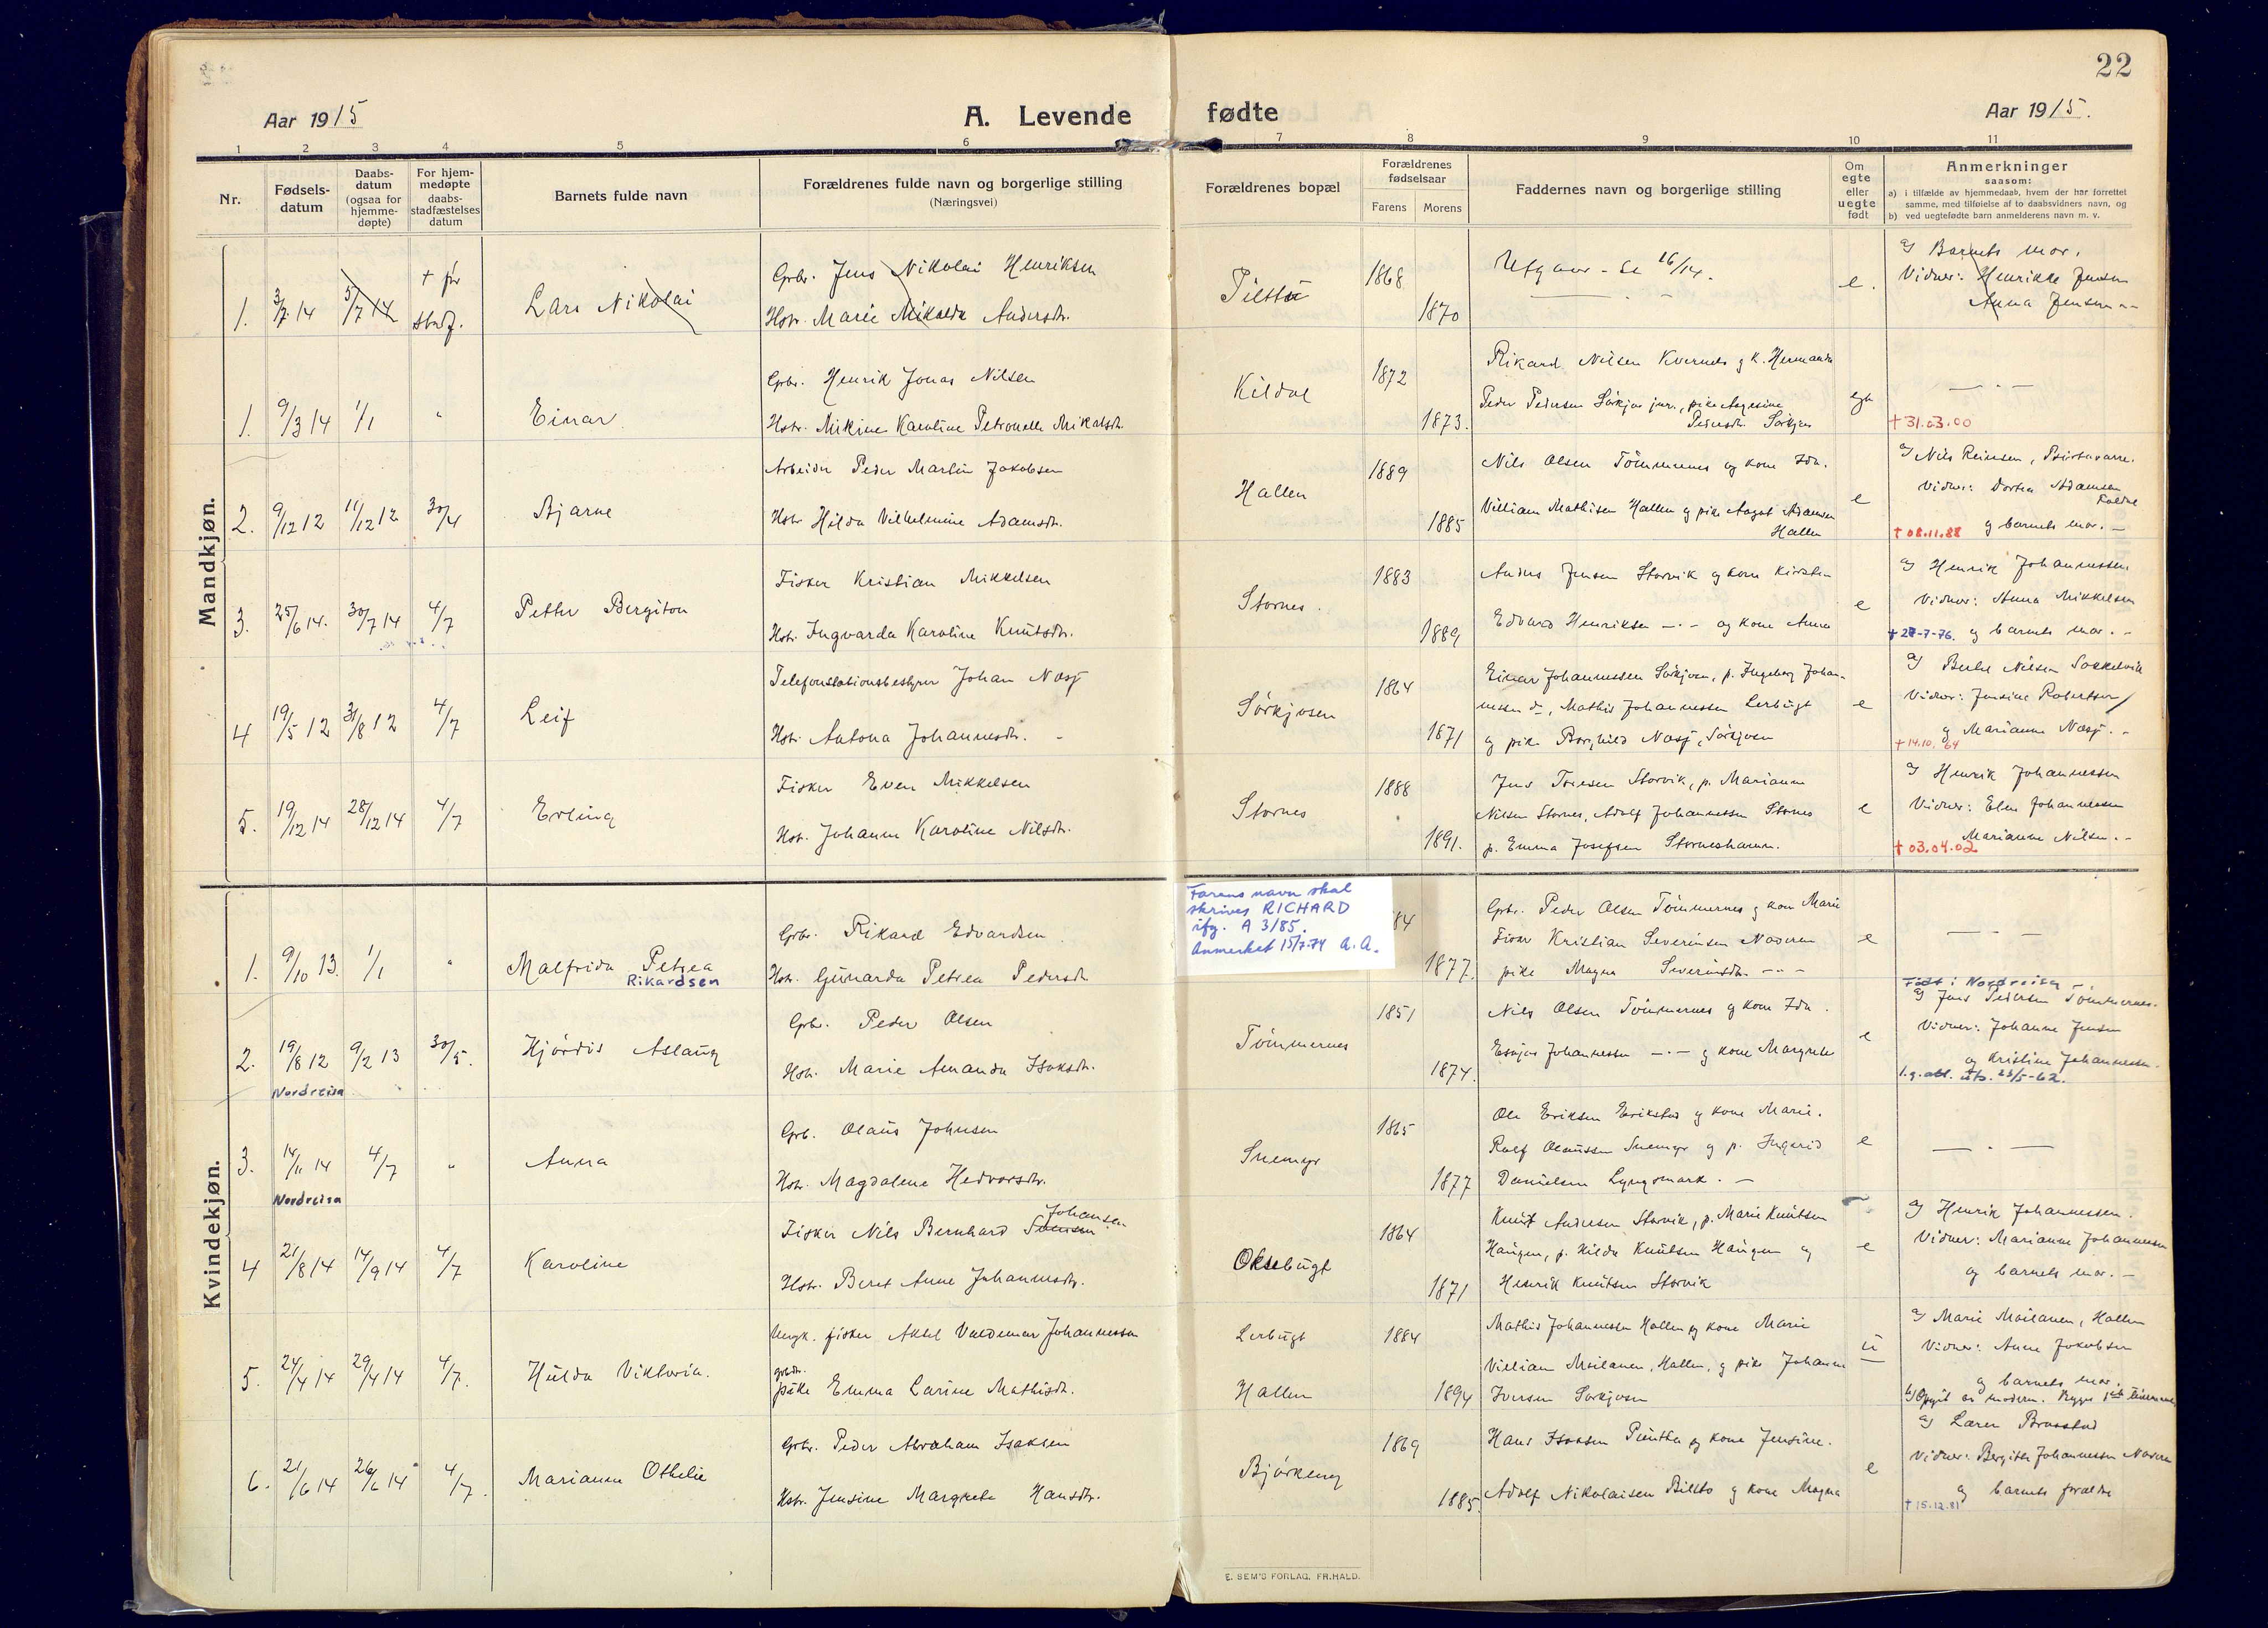 22
Aar 1915
A. Levende
fødte
Aar 1915.
1 2 3 4 5 6 7 8 9 10 11
Nr.
Fødsels-
datum
Daabs-
datum
(ogsaa for
hjemme-
døpte)
For hjem-
medøpte
daabs-
stadfæstelses
datum
Barnets fulde navn
Forældrenes fulde navn og borgerlige stilling
(Næringsvei)
Forældrenes bopæl
Forældrenes
fødselsaar
Farens Morens
Faddernes navn og borgerlige stilling
Om
egte
eller
uegte
født
Anmerkninger
saasom:
a) i tilfælde av hjemmedaab, hvem der har forrettet
samme, med tilføielse af to daabsvidners navn, og
b) ved uegtefødte barn anmelderens navn m. v.
Mandkjøn.
1. 3/7 14 5/7 14 + før stadf. Lars Nikolai
Gbr. Jens Nikolai Henriksen
Hstr. Marie Nikolda Andersdtr.
1868
1870
Utgaar - Se 16/14.
e.
a) Barnets mor.
Vidner: Henrikke Jensen
Anna Jensen
1. 9/3 14 1/1 " Einar
Gbr. Henrik Jonas Nilsen
Hstr. Mikine Karoline Petronelle Mikalsdtr.
Kildal
1872
1873.
Rikard Nilsen Kvernes g k. Hermanda
Peder Pedersen Sörkjos jun., pike Aagesine
Pedersdtr. Sörkjos
egte
— . —
+ 31.03.00
2. 9/12 12 11/12 12 30/4 Bjarne
Arbeider Peder Martin Jakobsen
Hstr Hilda Vilhelmine Adamsdtr.
Hallen
1889
1885
Nils Olsen Tömmernes og kone Ida.
Villiam Mathisen Hallen g pike Aagot Adamsen
Hallen
e
a) Nils Reiersen,
Vidner: Dortea Adamsen
+ 08.11.88 g barnets mor. —
3. 25/6 14. 30/7 14 4/7 Petter Bergiton
Fisker Kristian Mikkelsen
Hstr. Ingvarda Karoline Knutsdtr.
Stornes.
1883
1889
Anders Jensen Storvik og kone Kirsten
Edvard Henriksen — . — og kone Anna
e
a) Henrik Johannessen
Vidner: Anna Mikkelsen
+ 27-7-76. g barnets mor. -
4 19/5 12 31/8 12 4/7 Leif
Telefonstationsbestyrer Johan Næsj
Hstr. Antona Johannesdtr. -
Sörkjosen
1864
1871
Einar Johannessen Sörkjosen, p. Ingeborg Johan-
nessen do, Mathis Johannessen Lerbugt
og pike Borghild Næsj, Sörkjosen
e
a) Berthe Nilsen
Vidner: Jensine Robertsen
g Marianne Næsj. -
+ 14.10. 64
5. 19/12 14 28/12 14 4/7 Erling
Fisker Even Mikkelsen
Hstr. Johanne Karoline Nilsdtr.
Stornes
1888
1891.
Jens Toresen Storvik, p. Marianne
Nilsen Stornes, Adolf Johannessen Stornes
p. Emma Josefsen Storneshavn.
e
a) Henrik Johannessen
Vidner: Elen Johannessen
Marianne Nilsen. -
+ 03.04.02
Kvindekjøn.
Farens navn skal
skrives RICHARD
ifg. A 3/85.
Anmerket 15/7-74 A. A.
1. 9/10 13. 1/1 " Malfrida Petrea
Rikardsen
Gbr. Rikard Edvardsen
Hstr. Gunarda Petrea Pedersdtr.
84
1877.
Gbr. Peder Olsen Tömmernes g kone Marie
Fisker Kristian Severinsen Naveren
pike Magna Severinsdtr. — . —
e
— . —
2. 19/8 12 9/2 13 30/5. Hjördis Aslaug
Nordreisa
Gbr. Peder Olsen
Hstr. Marie Amanda Isaksdtr.
Tömmernes
1851
1874.
Nils Olsen Tömmernes g kone Ida.
Esaias Johannessen — . — g kone Margrete
e
Født i Nordreisa
a) Jens Pedersen Tömmernes.
Vidner: Johanne Jensen
og Kristine Johannessen.
l.g. att. utb. 23/5-62.
3. 14/11 14 4/7 " Anna
Nordreisa
Gbr. Olaus Johnsen
Hstr. Magdalene Hedvarsdtr.
Snemyr
1865
1877
Ole Eriksen Erikstad g kone Marie.
Rolf Olaussen Snemyr g p. Ingerid
Danielsen Lyngsmark. —
e
— . —
4 21/8 14 14/9 14 4/7 Karoline
Fisker Nils Bernhard Johansen
Hstr. Beret Anne Johannesdtr.
Oksebugt
1864
1871
Knut Andersen Storvik, p. Marie Knutsen
Haugen, p. Hilda Knutsen Haugen og
Henrik Knutsen Storvik
e
a) Henrik Johannessen.
Vidner: Marianne Johannessen
og barnets mor. —
5. 24/4 14 29/4 14 4/7. Hulda Viktoria.
Ungk. fisker Aksel Valdemar Johannessen
gbdtr.
pike Emma Larine Mathisdtr.
Lerbugt
Hallen
1884
1894
Mathis Johannessen Hallen g kone Marie
Villiam Moilanen, Hallen, g pike Johanne
Iversen Sörkjosen
u
a) Marie Moilanen, Hallen
Vidner: Anne Jakobsen
g barnets mor.
b) Opgit av moderen.
6. 21/6 14 26/6 14 4/7. Marianne Othelie
Gbr. Peder Abraham Isaksen
Hstr. Jensine Margrete Hansdtr.
Björkeng
1869
1885.
Hans Isaksen Puntta g kone Jensine.
Adolf Nikolaisen Bilto g kone Magna
e
a) Lærer Brosstad
Vidner: Bergitte Johannessen Naveren
og barnets forældre
+ 15.12.81
E. SEM'S FORLAG, FR.HALD.